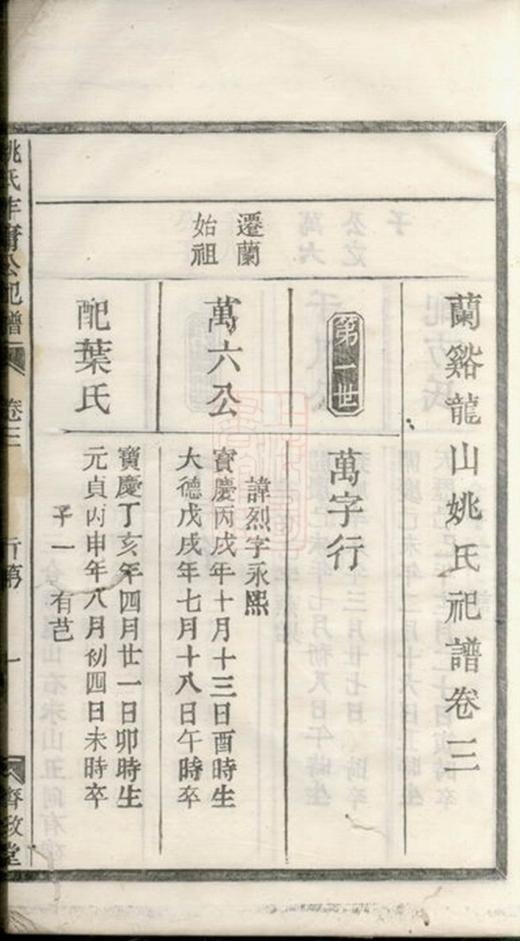 蘭谿龍山姚氏祀譜卷三
第一世
萬字行
遷蘭
始祖
萬六公
諱烈字永熙
寶慶丙戌年十月十三日酉時生
大德戊戌年七月十八日午時卒
配葉氏
寶慶丁亥年四月廿一日卯時生
元貞丙申年八月初四日未時卒
子一
有芑
姚氏
公祀譜
卷三
行第
一
齊政堂